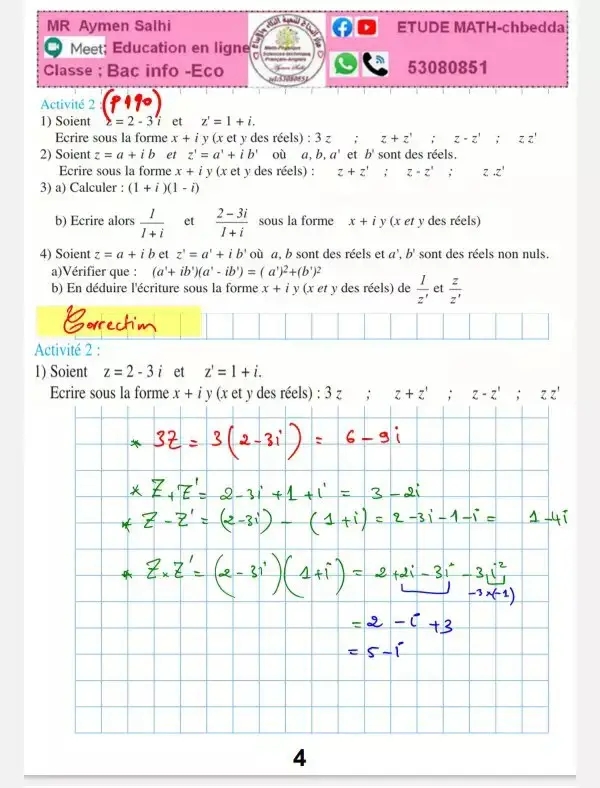 MR Aymen Salhi
Meet; Education en ligne
Classe ; Bac info -Eco
ETUDE MATH-chbedda
53080851
Activité 2 : (P190)
1) Soient z = 2 - 3 i et z' = 1 + i.
Ecrire sous la forme x + i y (x et y des réels) : 3 z ; z + z' ; z - z' ; z z'
2) Soient z = a + i b et z' = a' + i b' où a, b, a' et b' sont des réels.
Ecrire sous la forme x + i y (x et y des réels) : z + z' ; z - z' ; z .z'
3) a) Calculer : (1 + i )(1 - i)
b) Ecrire alors 1/(1 + i) et (2 – 3i)/(1 + i) sous la forme x + i y (x et y des réels)
4) Soient z = a + i b et z' = a' + i b' où a, b sont des réels et a', b' sont des réels non nuls.
a)Vérifier que : (a'+ ib')(a' - ib') = ( a')²+(b')²
b) En déduire l'écriture sous la forme x + i y (x et y des réels) de 1/z' et z/z'
Correction
Activité 2 :
1) Soient z = 2 - 3 i et z' = 1 + i.
Ecrire sous la forme x + i y (x et y des réels) : 3 z ; z + z' ; z - z' ; z z'
* 3Z = 3(2-3i) = 6-9i
* Z+Z' = 2-3i+1+i = 3-2i
* Z-Z' = (2-3i) - (1+i) = 2-3i-1-i = 1-4i
* Z×Z' = (2-3i)(1+i) = 2+2i-3i-3i²
-3×(-1)
= 2 - i + 3
= 5-i
4